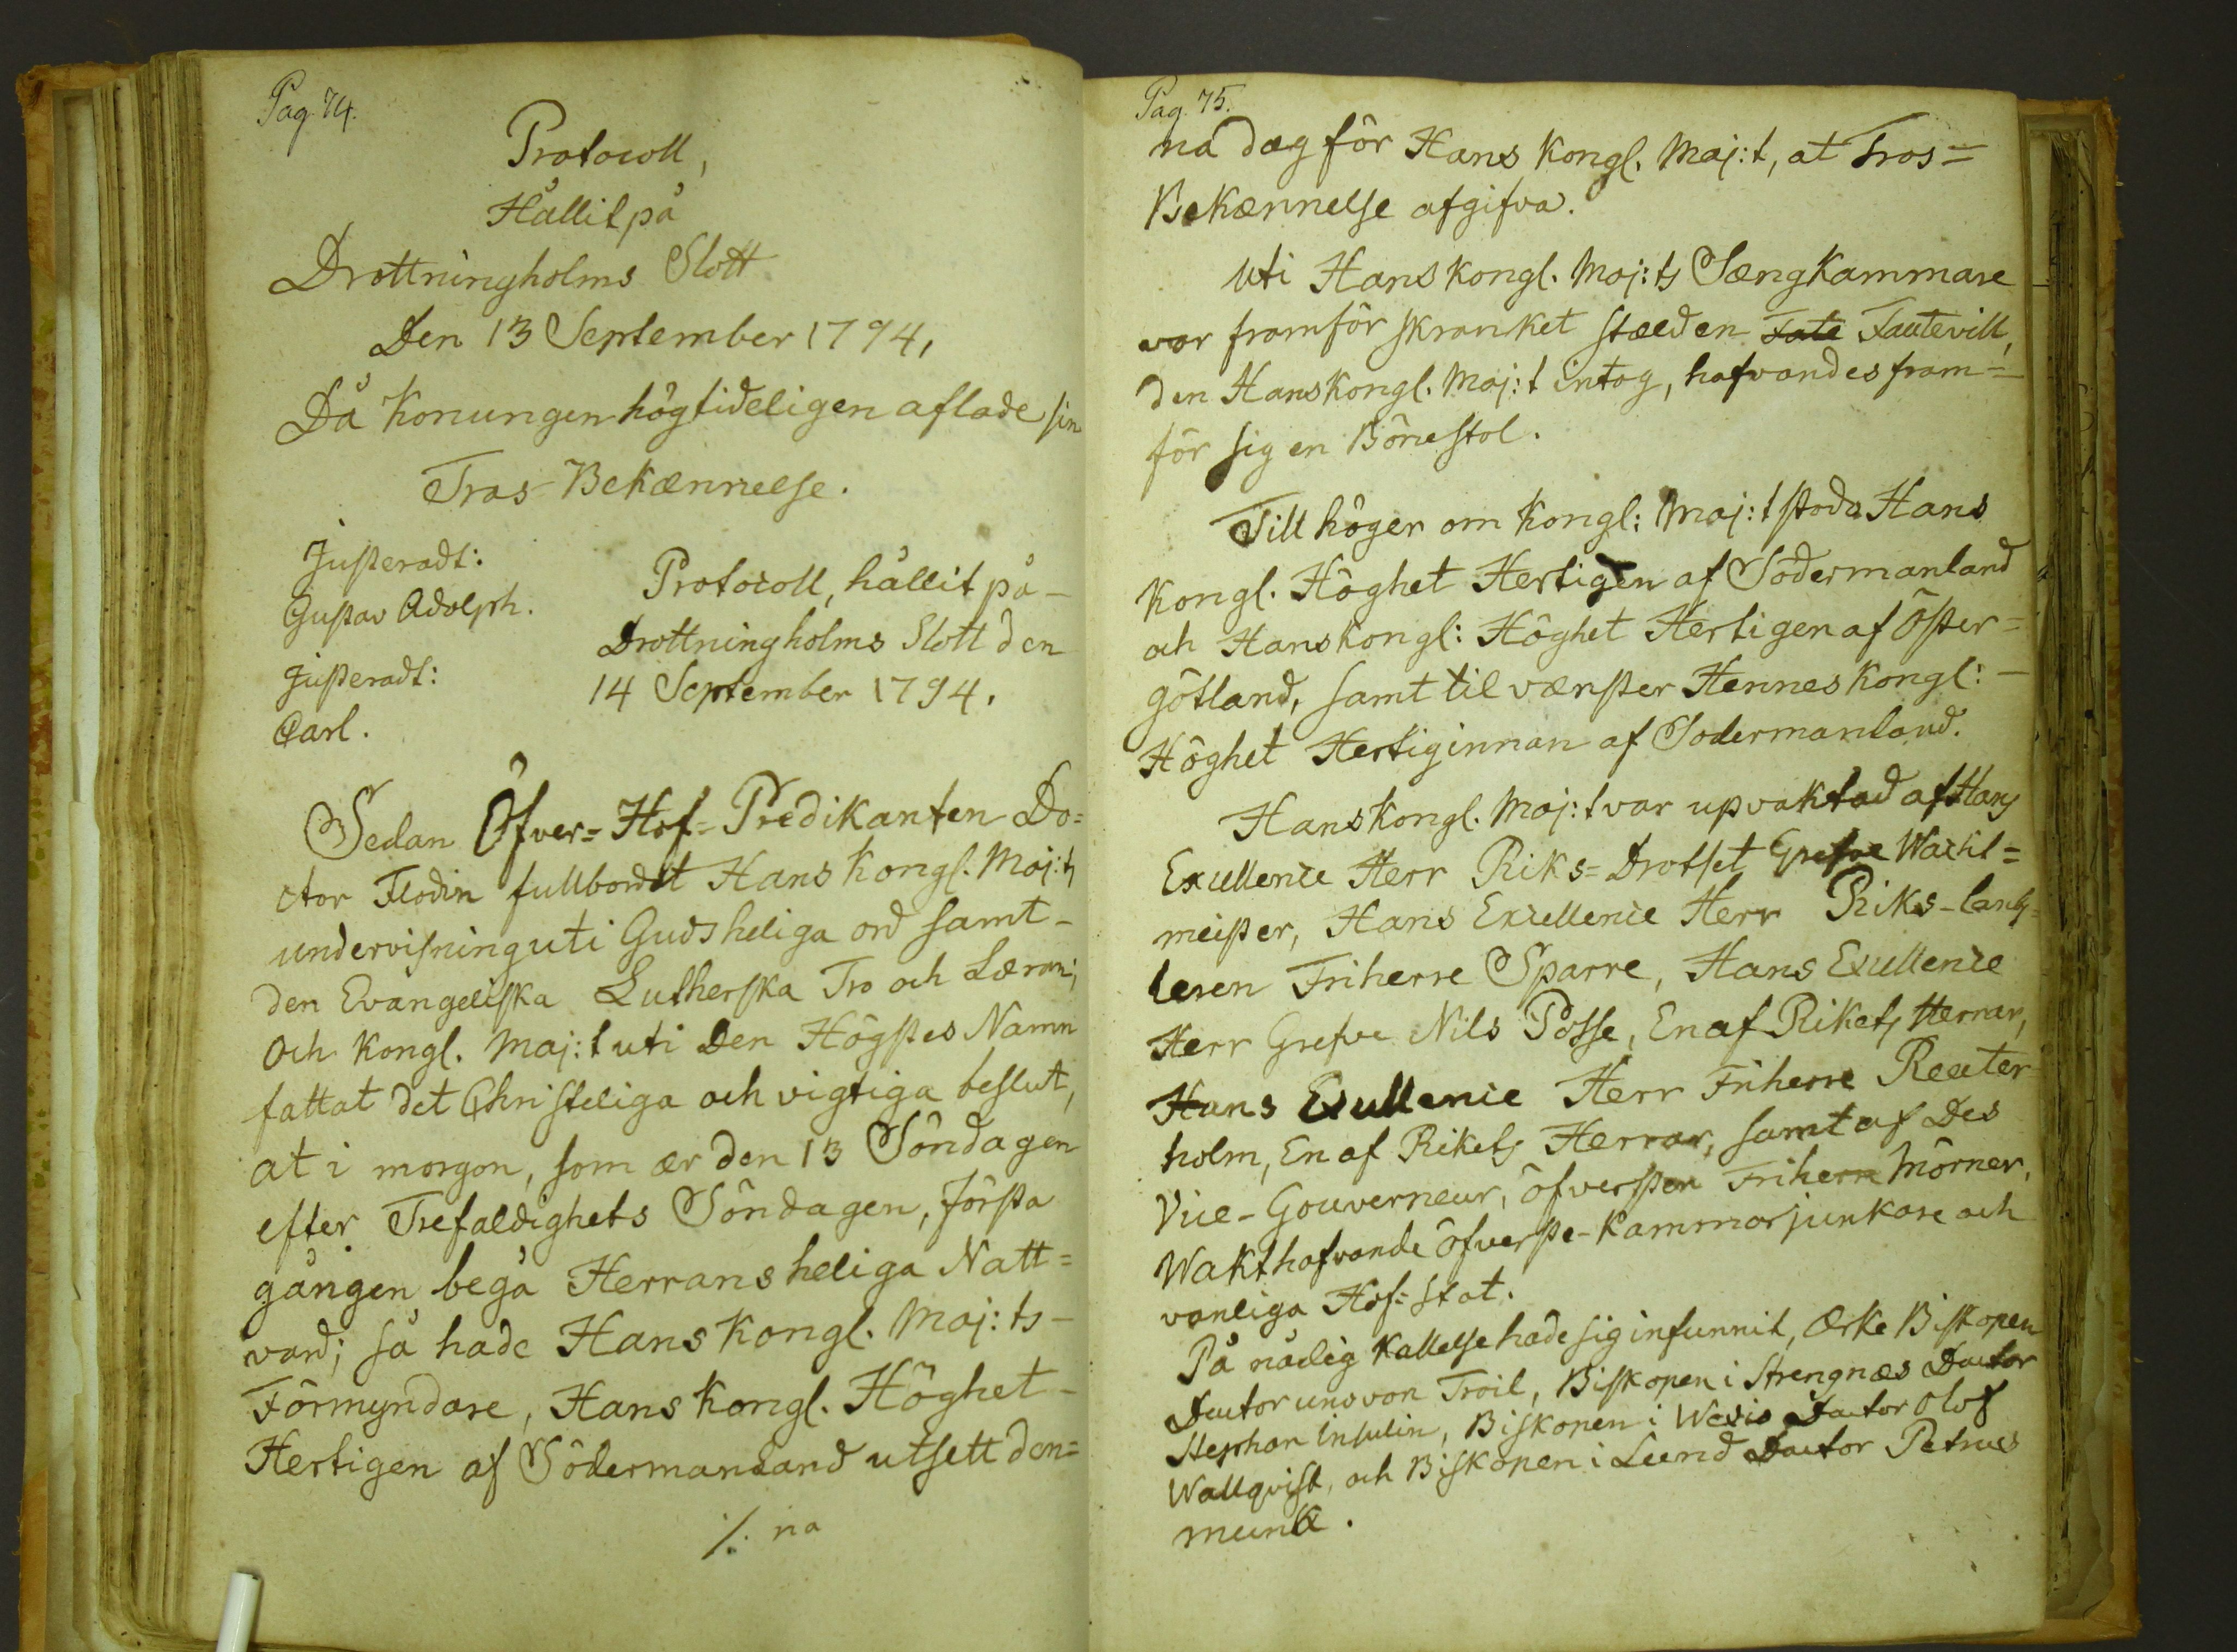 Pag. 74.
Protocoll,
Hållit på
Drottningholms Slott
Den 13 September 1794,
Då Konungen högtideligen aflade sin
Tros-Bekænnelse.
Justeradt:
Gustav Adolph.
Justeradt:
Carl.
Protocoll, hållit på -
Drottningholms Slott den
14 September 1794.
Sedan Öfver=Hof=Predikanten Do=
ctor Flodin fullbordt Hans Kongl. Maj:ts
undervisning uti Guds heliga ord samt -
den Evangeliska Lutherska Tro och Læran;
Och Kongl. Maj:t uti Den Högstes Namn
fattat det Christeliga och vigtiga beslut,
at i morgon, som ær den 13 Söndagen
efter Trefaldighets Söndagen, första
gången begå Herrans heliga Natt=
vard; så hade Hans Kongl. Maj:ts -
Förmyndare, Hans Kongl. Höghet -
Hertigen af Södermanland utsett den=
./. na
Pag. 75.
na dag för Hans Kongl. Maj:t, at Tros=
Bekænnelse afgifva.
Uti Hans Kongl. Maj:ts Sængkammare
var framför skranket stæld en Fate Fautevill,
den Hans Kongl. Maj:t intog, hafvandes fram=
för sig en Bönestol.
Till höger om Kongl: Maj:t stodo Hans
Kongl. Höghet Hertigen af Södermanland
och Hans Kongl: Höghet Hertigen af Öster=
götland, samt til vænster Hennes Kongl: -
Höghet Hertiginnan af Sodermanland.
Hans Kongl. Maj:t var upvaktad af Hans
Excellence Herr Riks=Drotset Grefve Wacht=
meister, Hans Excellence Herr Riks-Cants=
leren Friherre Sparre, Hans Excellence
Herr Grefve Nils Posse, En af Rikets Herrar,
Hans Excellence Herr Friherre Reuter
holm, En af Rikets Herrar, samt af Des
Vice-Gouverneur, Öfversten Friherre Mörner,
Wakthafvande Öfverste-Kammarjunkare och
vanliga Hof=Stat.
På nådig Kallelse hade sig infunnit, Ærke Biskopen
Doctor Uno von Troil, Biskopen i Strengnæs Doctor
Stephan Insulin, Biskopen i Wexio Doctor Olof
Wallqvist, och Biskopen i Lund Doctor Petrus
Munck.